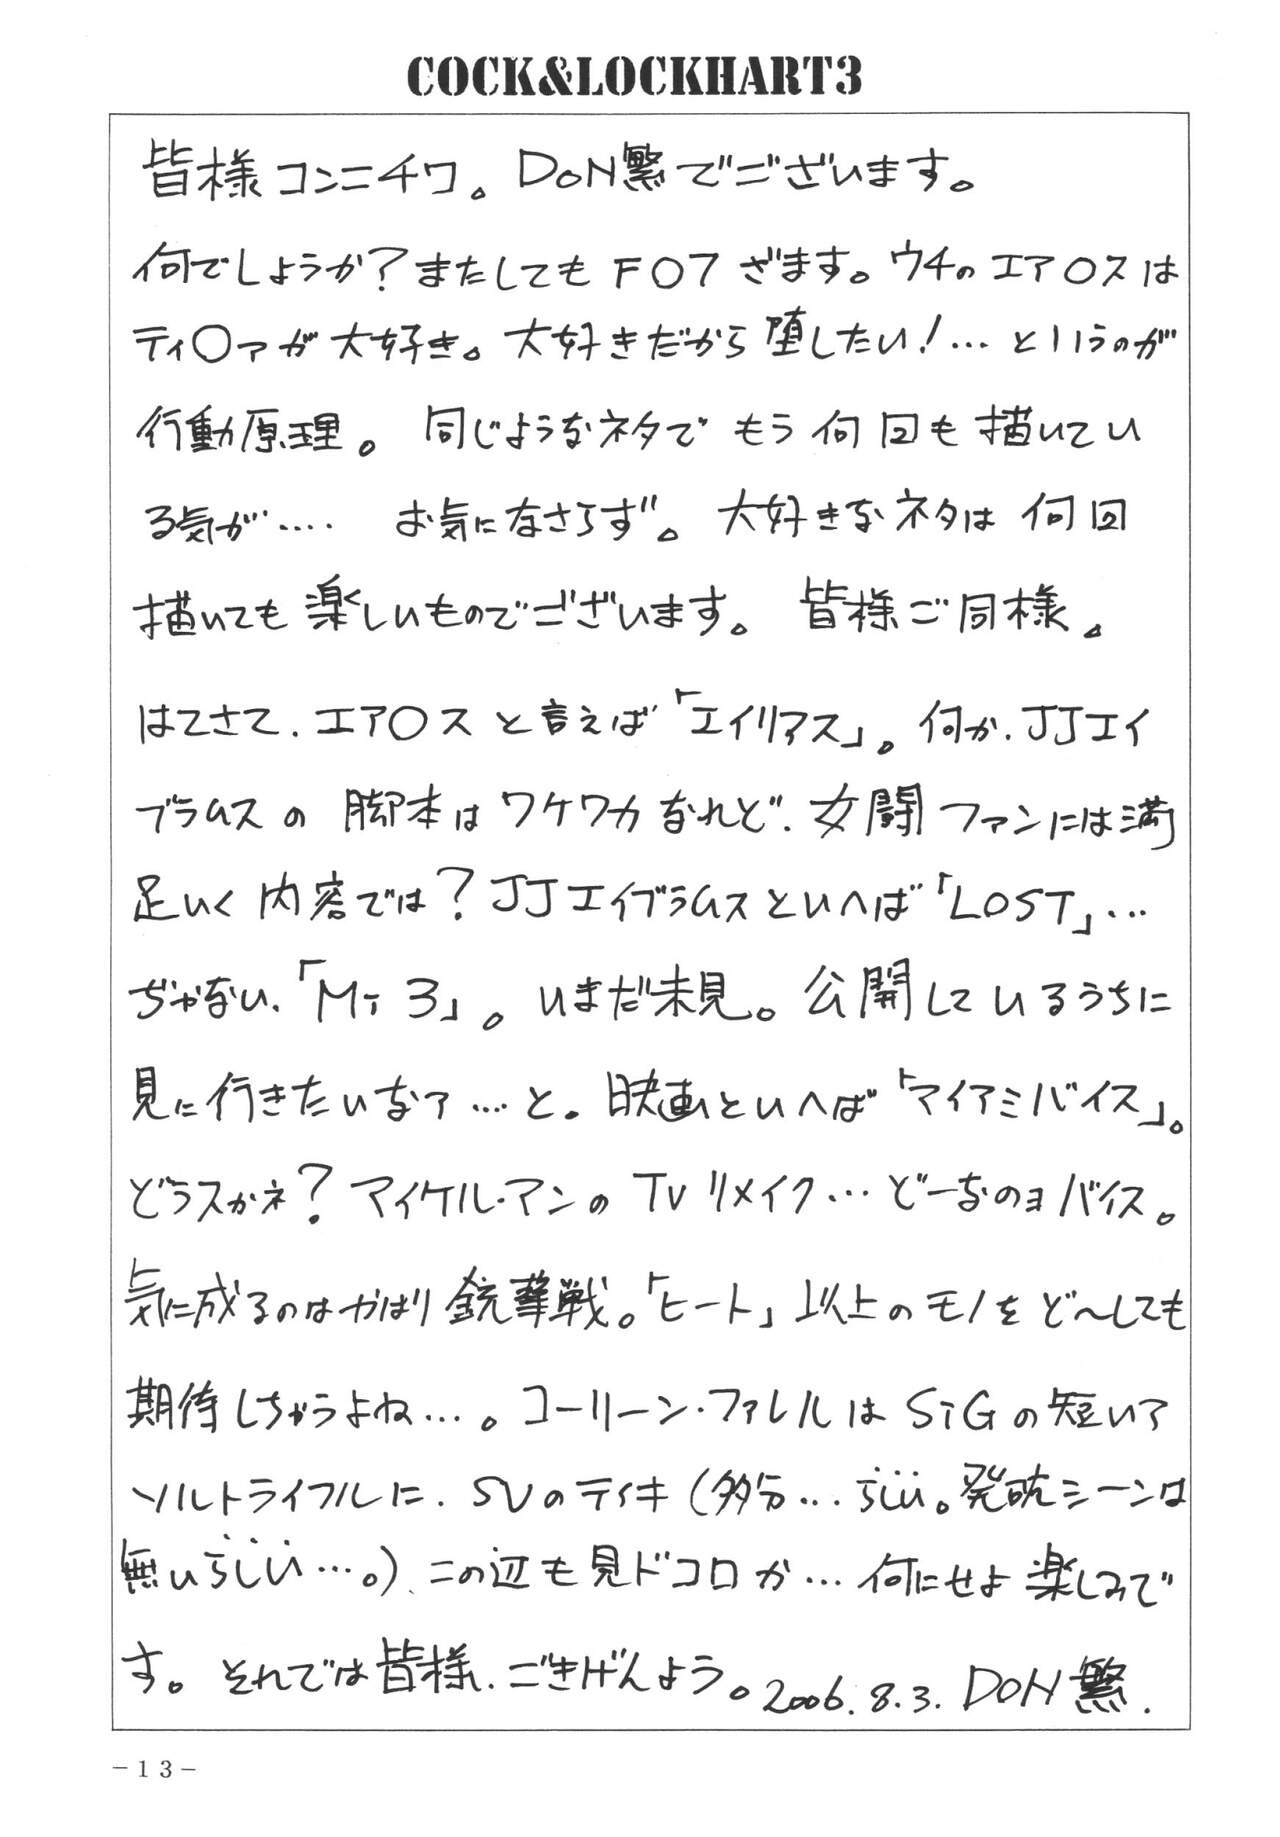 COCK&LOCKHART3
皆様コンニチワ。DoN繁でございます。
何でしょうか？またしてもFO7ざます。ウチのエア〇スは
ティ〇ァが大好き。大好きだから堕したい！…というのが
行動原理。同じようなネタでもう何回も描いてい
る気が‥‥お気になさらず。大好きなネタは何回
描いても楽しいものでございます。皆様ご同様。
はてさて、エア〇スと言えば「エイリアス」。何か、JJエイ
ブラムスの脚本はワケワカなれど、女闘ファンには満
足いく内容では？JJエイブラムスといへば「LOST」…
ぢゃない、「Mi3」。いまだ未見。公開しているうちに
見に行きたいなァ…と。映画といへば「マイアミバイス」。
どうスかネ？マイケル・マンのTVリメイク…どーなのョバイス。
気に成るのはやはり銃撃戦。「ヒート」以上のモノをど〜しても
期待しちゃうよね…。コーリーン・ファレルはSiGの短いア
ソルトライフルに、SVのティキ（多分…らしい。発砲シーンは
無いらしい…。）、この辺も見ドコロか…何にせよ楽しみで
す。それでは皆様、ごきげんよう。2006.8.3.DoN繁.
－13－